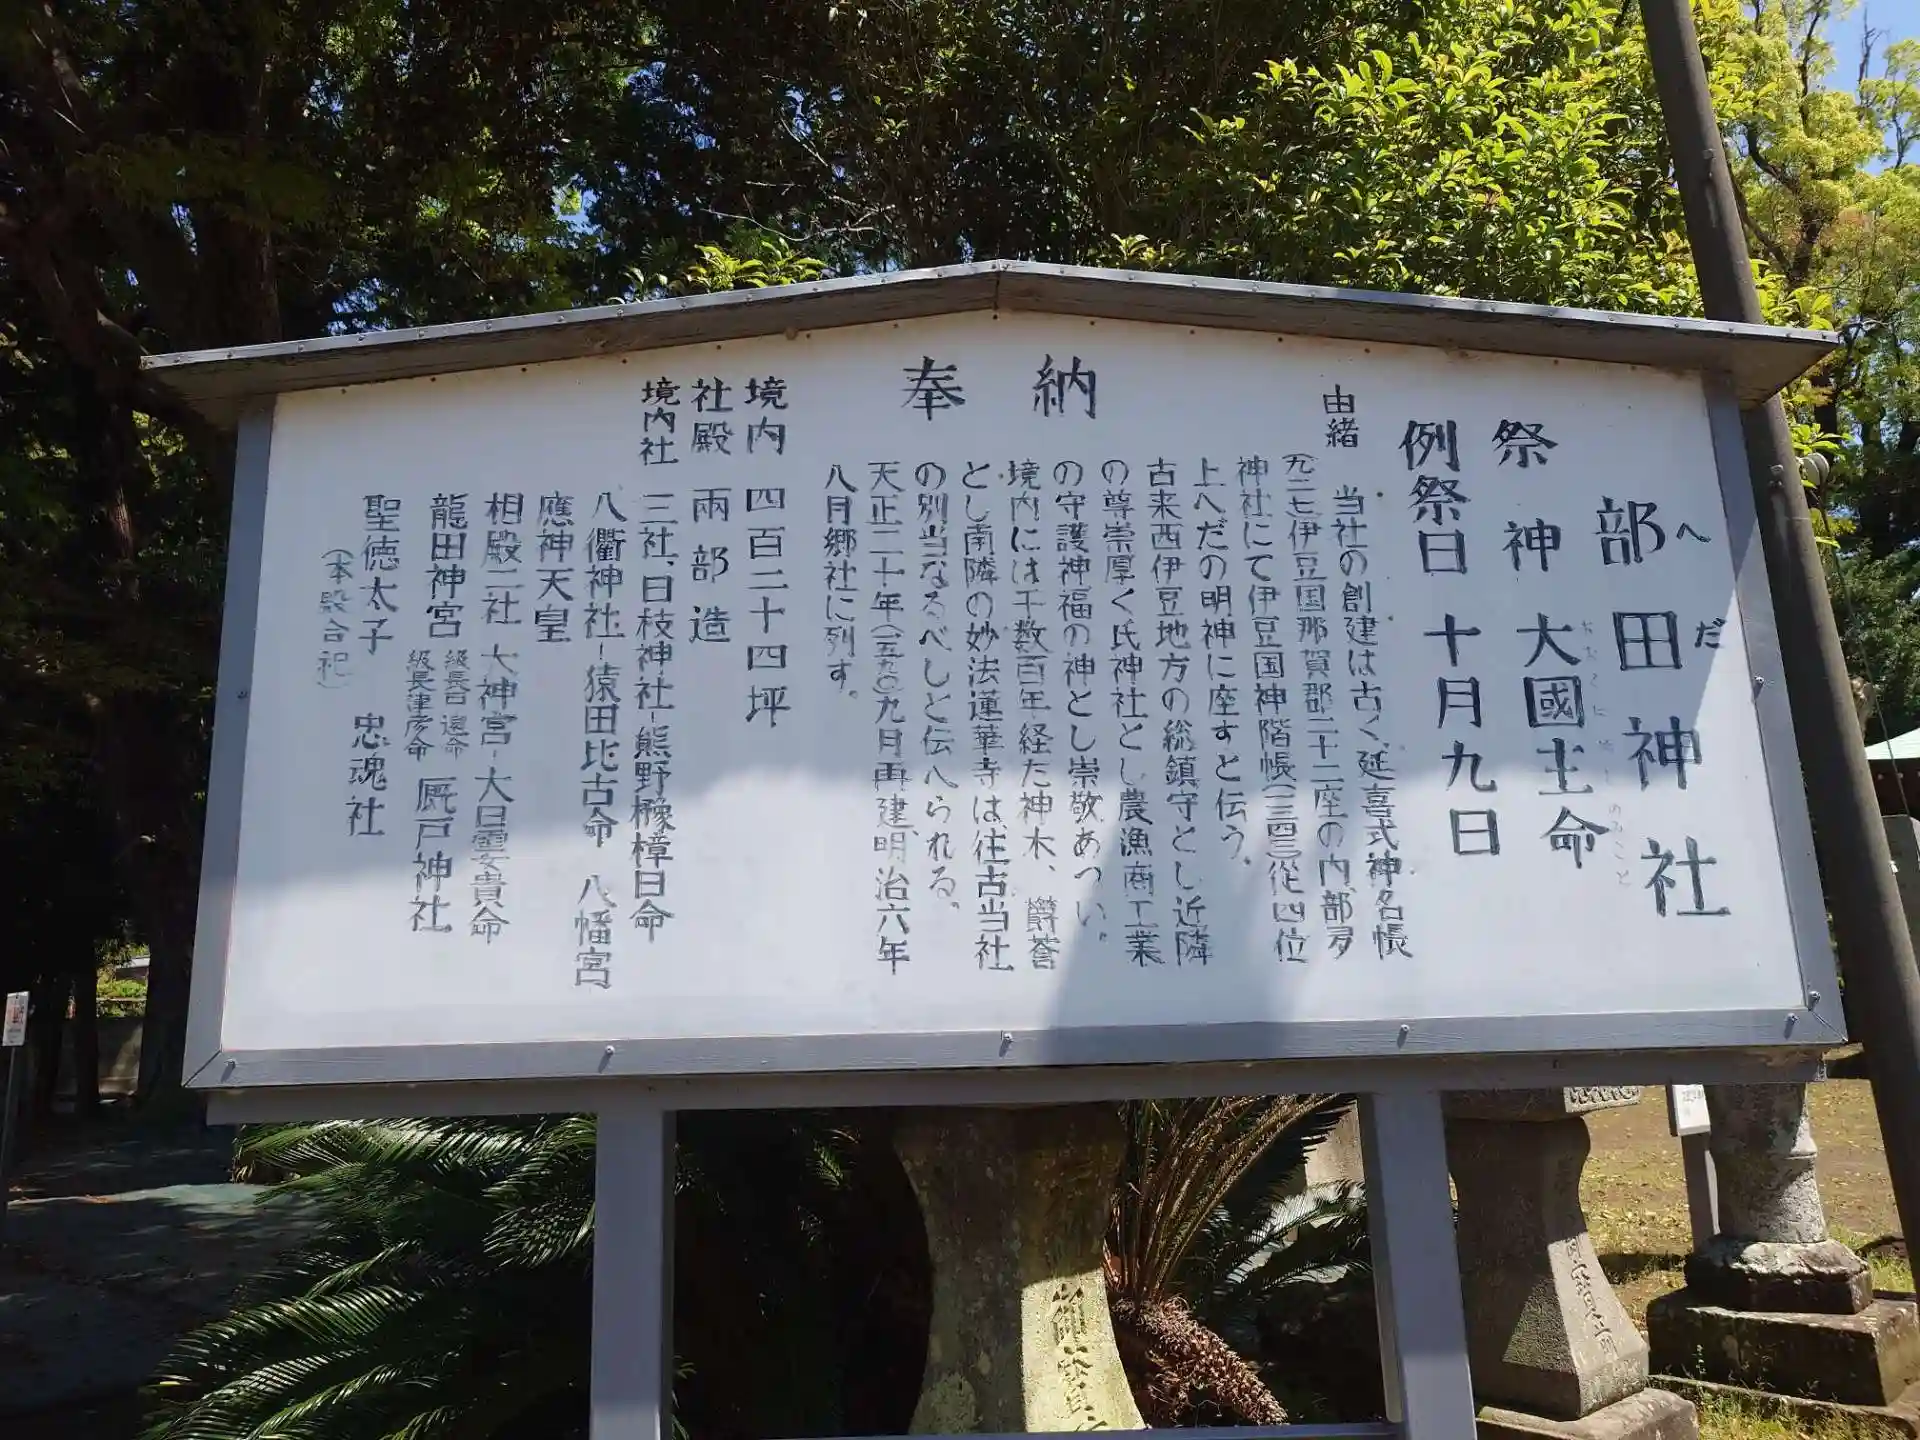 部田神社
へだ
祭神 大國主命
おおくにぬしのみこと
例祭日 十月九日
由緒
当社の創建は古く、延喜式神名帳
(九二七)伊豆国那賀郡二十二座の内、部多
神社にて伊豆国神階帳(一三四三)従四位
上へだの明神に座すと伝う。
古来西伊豆地方の総鎮守とし近隣
の尊崇厚く氏神社とし農漁商工業
の守護神福の神とし崇敬あつい。
境内には千数百年経た神木、欝蒼
とし南隣の妙法蓮華寺は往古当社
の別当なるべしと伝へられる。
天正二十年(一五九〇)九月再建、明治六年
八月郷社に列す。
奉納
境内 四百二十四坪
社殿 兩部造
境内社 三社、日枝神社-熊野櫲樟日命
八衢神社-猿田比古命 八幡宮
應神天皇
相殿二社 大神宮-大日孁貴命
龍田神宮 級長戸邊命 級長津彦命 厩戸神社
聖徳太子 忠魂社
(本殿合祀)